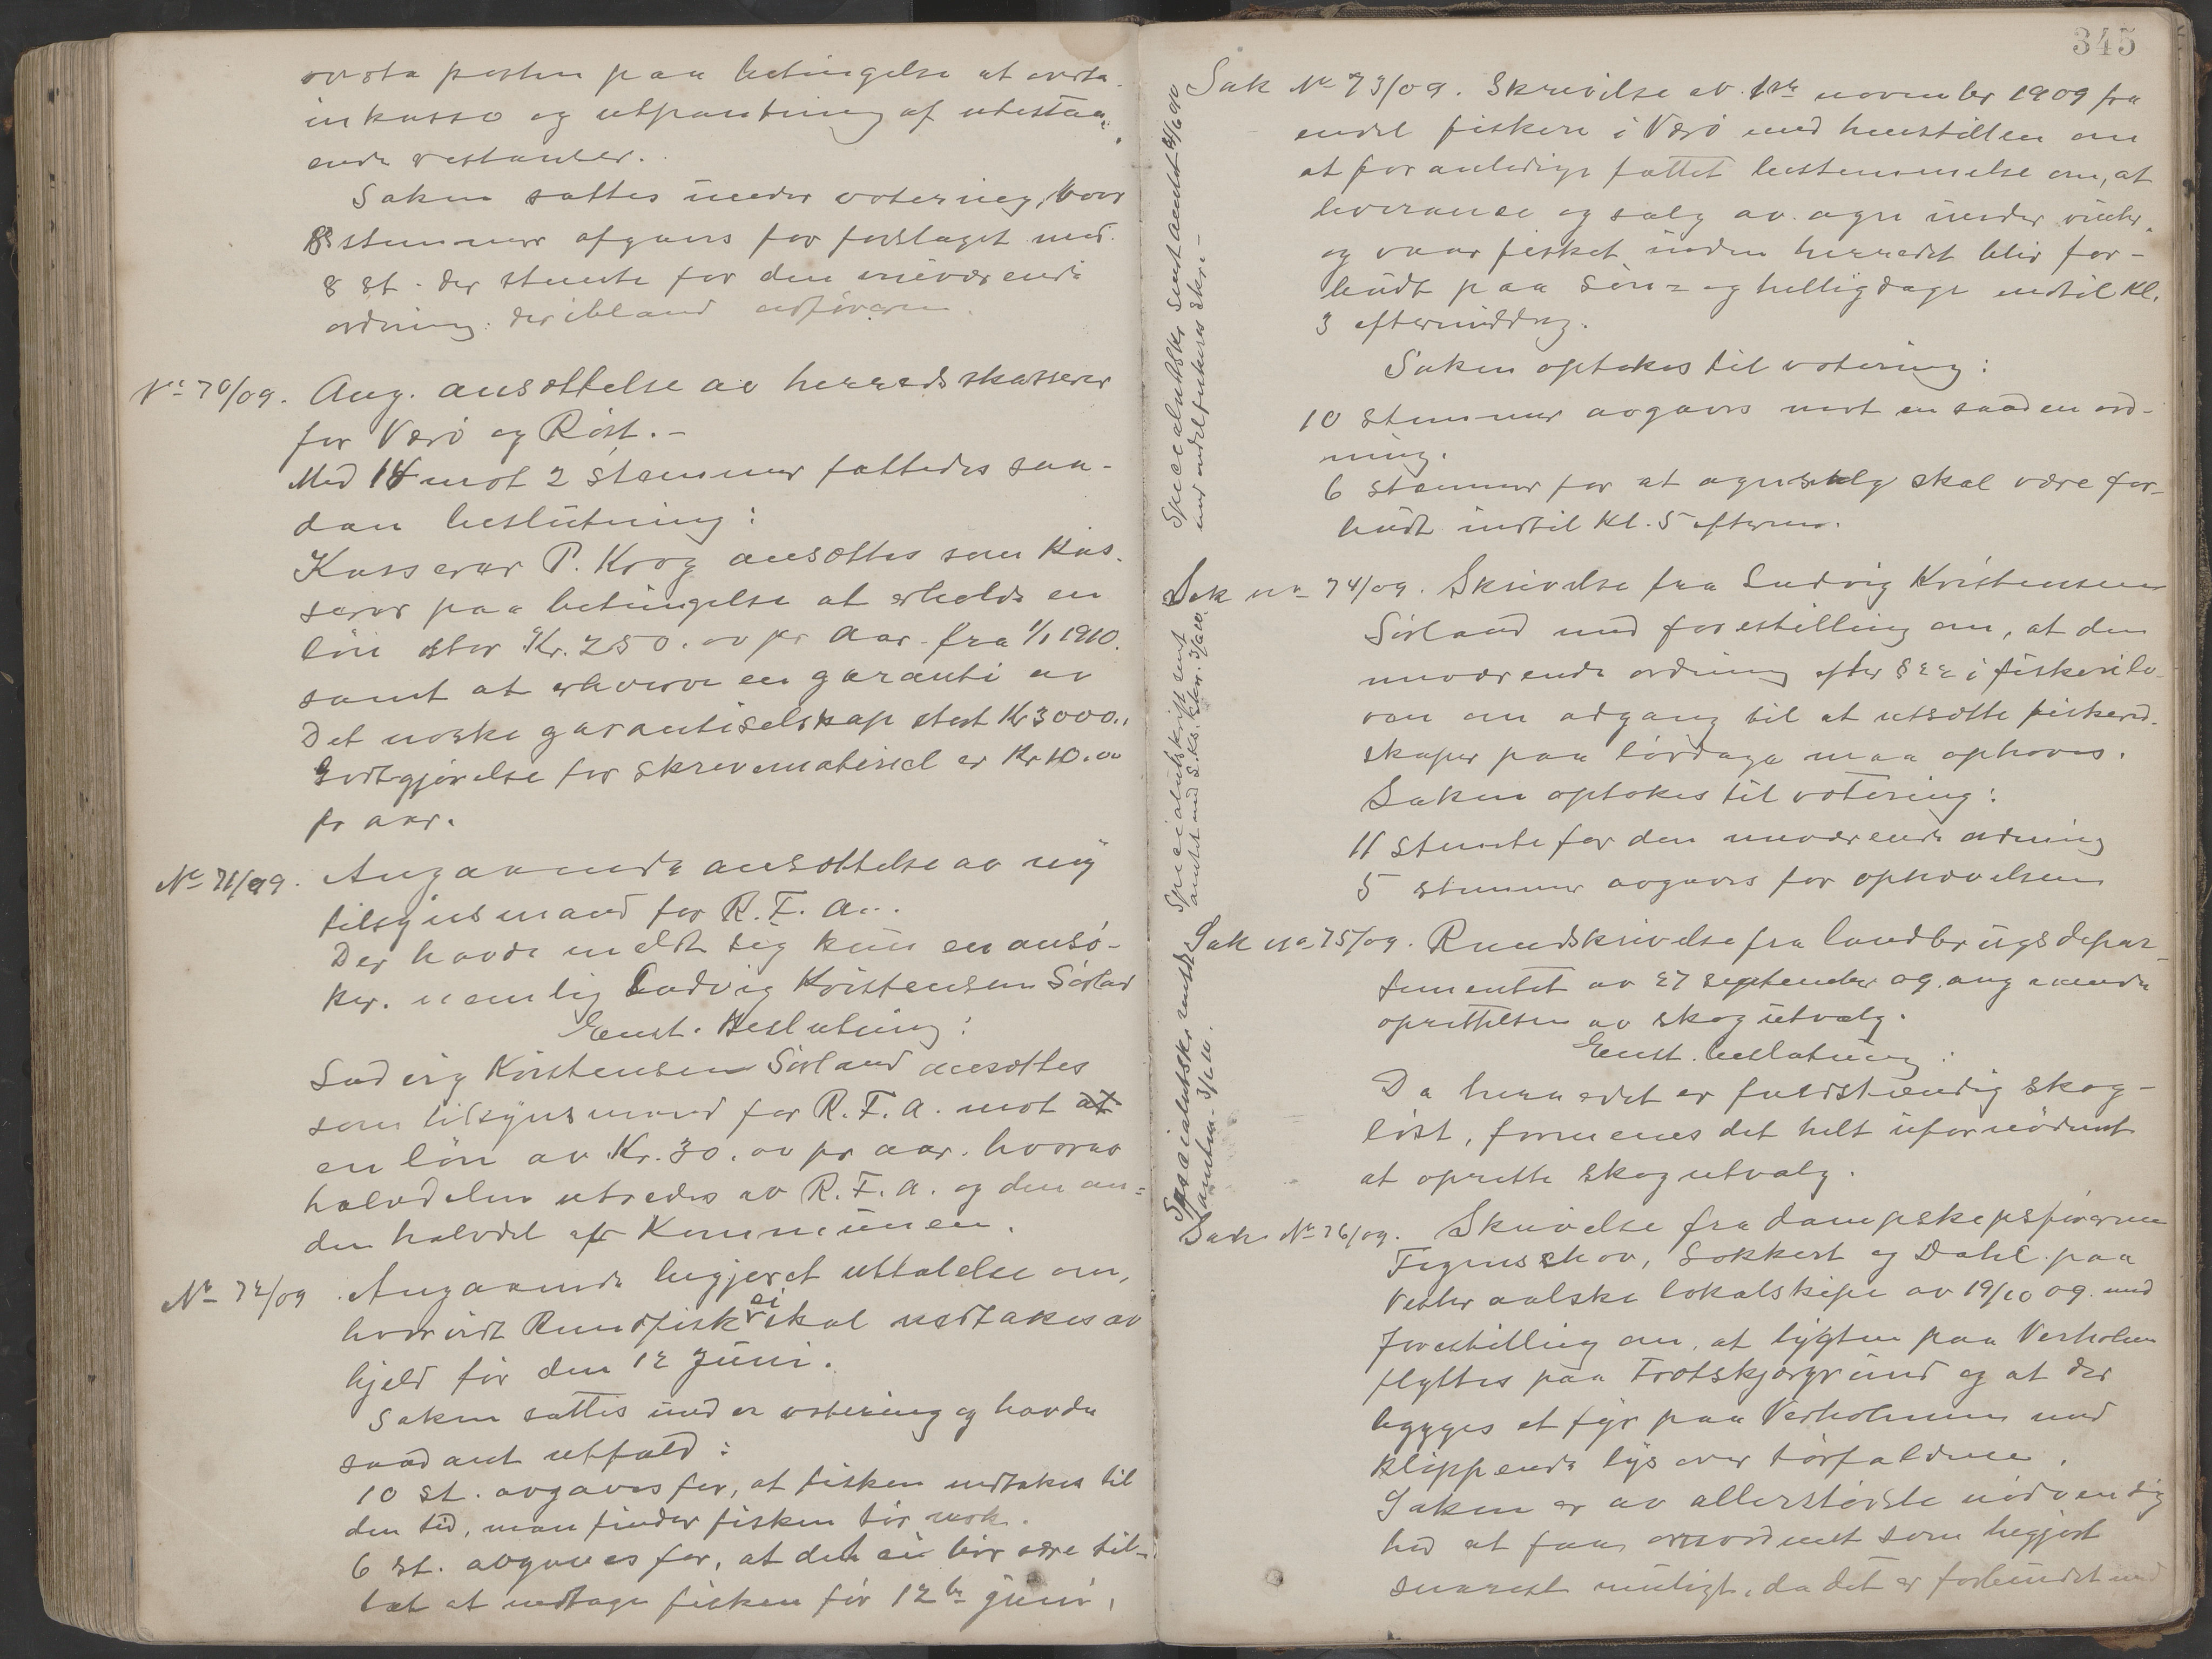 overta posten paa betingelse at overta
inkasso og utpantning af utestaa-
ende restanser.
Saken sattes under votering, hvor
8 stemmer afgaves for forslaget med
8 st. der stemte for den nuværende
ordning: deribland ordføreren.
No 70/09. Ang. ansættelse av herredskasserer
for Værö og Röst.-
Med 14 mot 2 stemmer fattedes saa-
dan beslutning:
Kasserer P. Krog ansættes som kas-
serer paa betingelse at erholde en
lön stor Kr. 250.00 pr Aar fra 1/1 1910.
samt at erhverve en garanti av
Det norske garantiselskap stort Kr 3000.,
Godtgjörelse for skrivemateriel er Kr 10.00
pr aar.
No 71/09. Angaaende ansættelse av ny
tilsynsmand for R. F. A..
Der havde meldt sig kun en ansö-
ker. nemlig Ludvig Kristensen Sörland
Enst. Beslutning:
Ludvig Kristensen Sörland ansættes
som tilsynsmand for R. F. A. mot at
en lön av Kr. 30.00 pr aar. hvorav
halvdelen utredes av R. F. A. og den an-
den halvdel af Kommunen.
No 72/09. Angaaende begjeret uttalelse om,
hvorvidt Rundfisk ei skal nedtakes av
hjeld för den 12 Juni.
Saken sattes under votering og havde
saadant utfald:
10 st. avgaves for, at fisken nedtakes til
den tid, man finder fisken tör nok.
6 st. avgaves for, at det ei bör være til-
lat at nedtage fisken för 12te juni,
345
Sak No 73/09. Skrivelse av 1ste november 1909 fra
endel fiskere i Værö med henstillen om
at foranledige fattet bestemmelse om, at
leveranse og salg av agn under vinter
og vaarfisket inden herredet blir for-
budt paa Sön- og helligdage indtil Kl.
3 eftermiddag.
Saken optokes til votering:
10 stemmer avgaves mot en saadan ord-
ning.
6 stemmer for at agnsalg skal være for-
budt indtil Kl. 5 efterm.
Specialutskr sent amtet
med endel fiskeres skr. -
Sak no 74/09. Skrivelse fra Ludvig Kristensen
Sörland med forestilling om, at den
nuværende ordning efter § 22 i fiskerilo-
ven om adgang til at utsætte fiskered-
skaper paa lördage maa ophæves.
Saken optokes til votering:
11 stemte for den nuværende ordning
5 stemmer avgaves for ophævelsen
Specialutskrift sent
amtet med L. Ks. skr. 3/1 10.
Sak no 75/09. Rundskrivelse fra landbrugsdepar-
tementet av 27 september 09. angaaende
oprettelsen av skogutvalg.
Enst. beslutning:
Da herredet er fuldstændig skog-
löst, formenes det helt ufornödent
at oprette skogutvalg.
Specialutskr sendt
amtet 3/1 10.
Sak No 76/09. Skrivelse fra dampskipsförerne
Fygenschov, Lokkert og Dahl paa
Vesteraalske lokalskipe av 19/10 09. med
forestilling om, at lygten paa Verholmen
flyttes paa Trotskjærgrund og at der
bygges et fyr paa Verholmen med
klippende lys over Törfaldene.
Saken er av allerstörste nödvendig
hed at faa omordnet som begjært
snarest muligt, da det er forbundet med